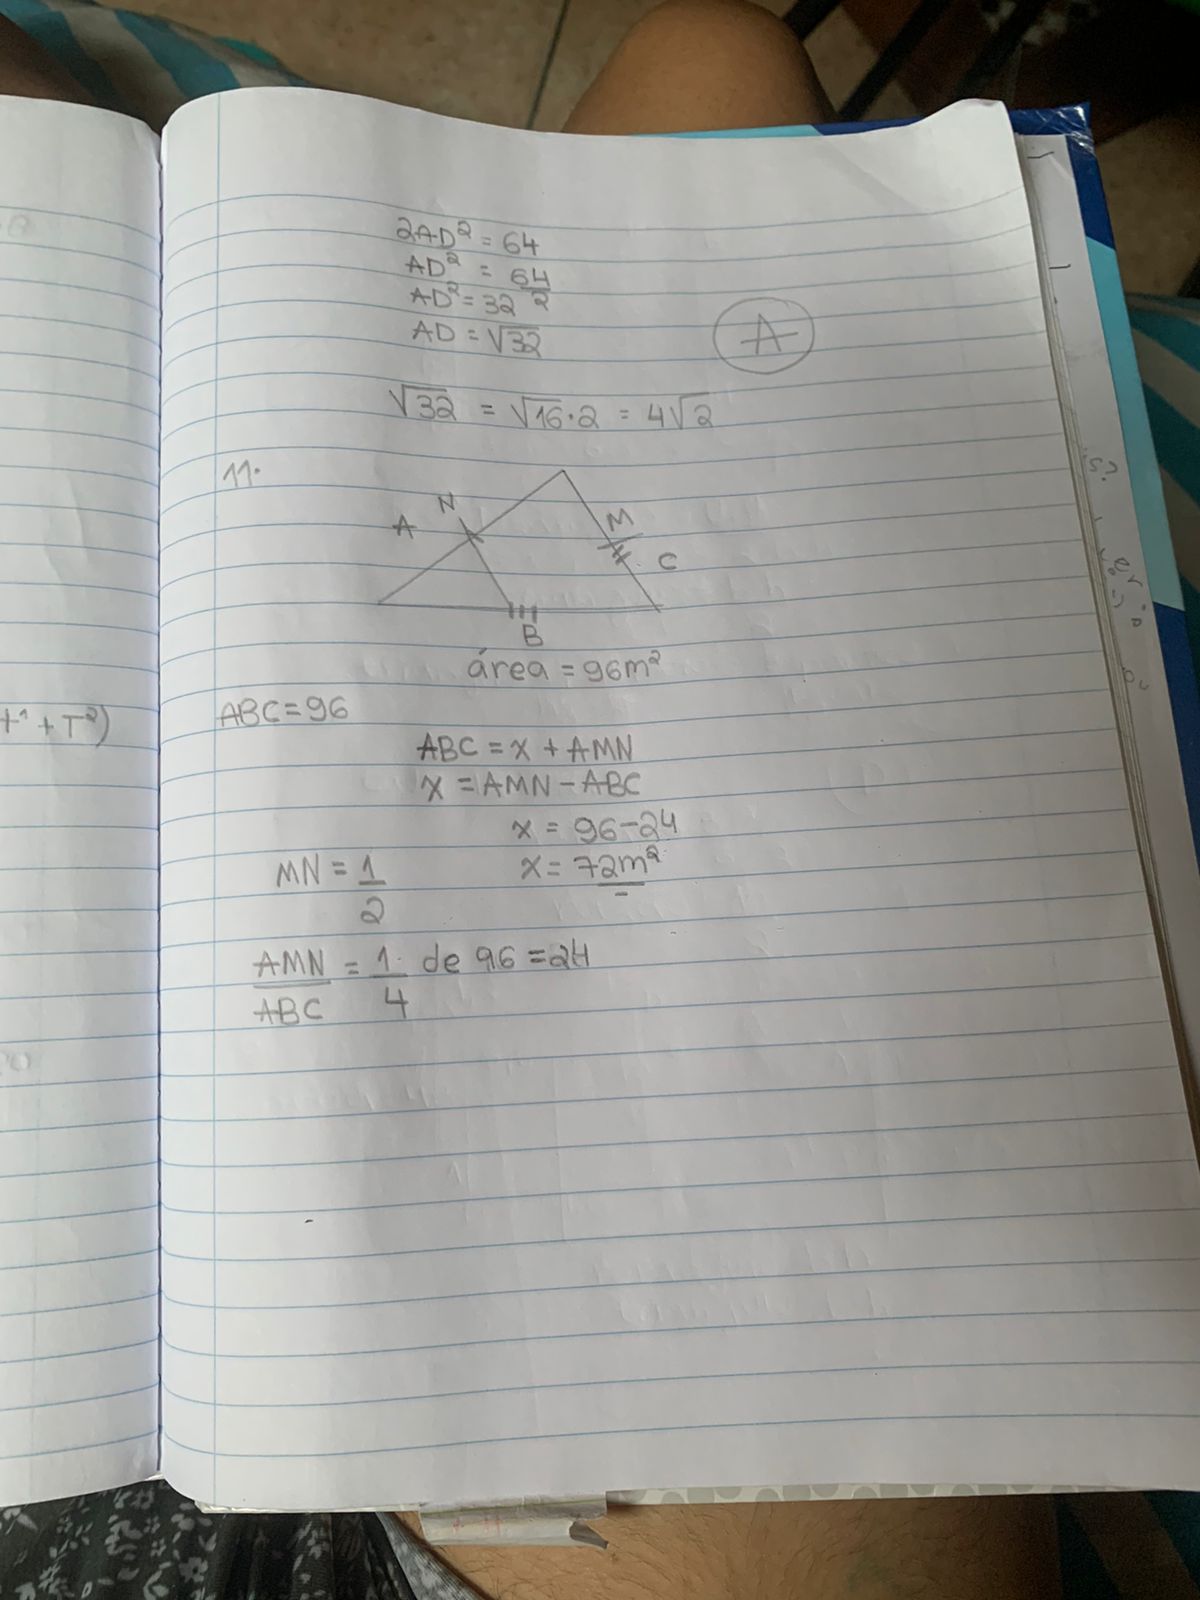 2AD² = 64
AD² = 64/2
AD² = 32
AD = √32
A
√32 = √16·2 = 4√2
11.
N
A
M
C
B
área = 96m²
ABC = 96
ABC = X + AMN
X = AMN - ABC
X = 96-24
X = 72m²
MN = 1/2
AMN/ABC = 1/4 de 96 = 24
t¹ + T²)